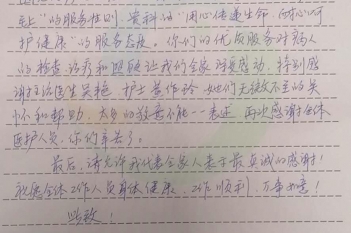 至上"的服务准则,贵科的"用心传递生命,耐心呵
护健康"的服务态度。你们的优质服务对病人
的检查、治疗和照顾让我们全家深受感动,特别感
谢主治医生吴艳、护士 她们无微不至的关
怀和帮助,太多的敬意不能一一表述,再次感谢全体
医护人员,你们辛苦了。
最后,请允许我代表全家人表示最真诚的感谢!
祝愿全体工作人员身体健康、工作顺利、万事如意!
此致!